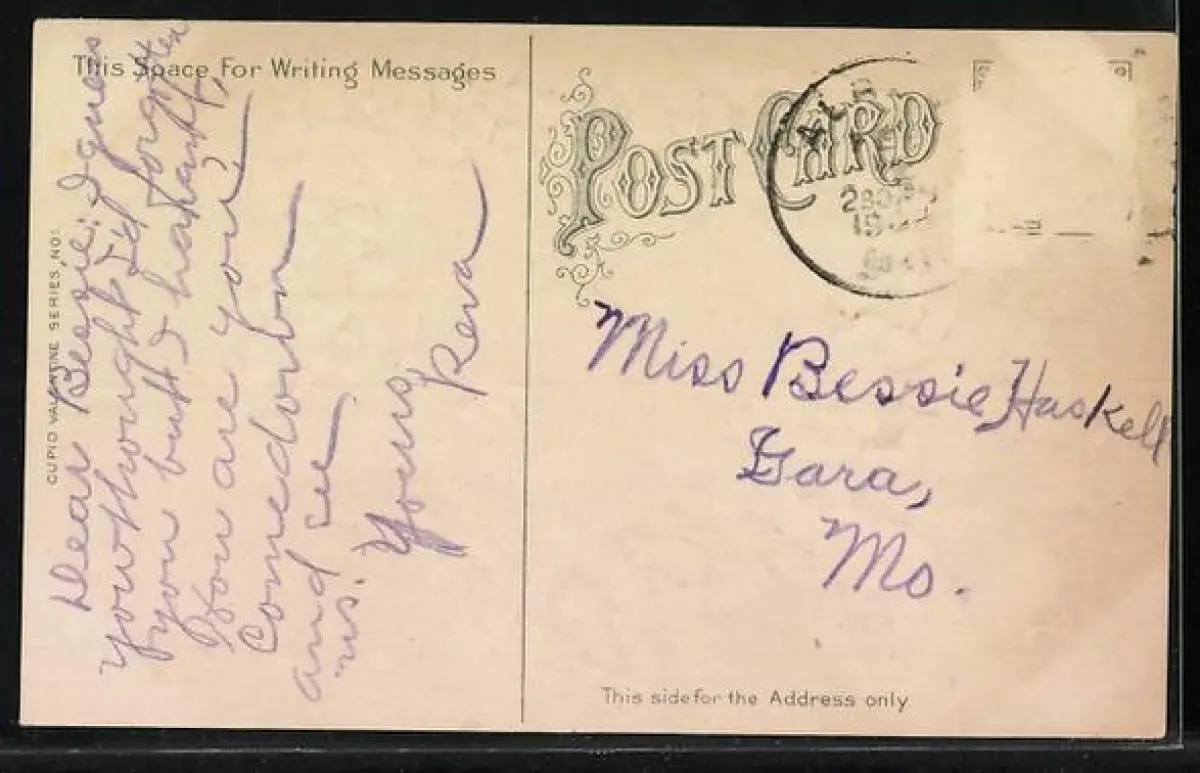 This Space For Writing Messages
CUPID VALENTINE SERIES, NO:
Dear Bessie: I guess
you thought I'd forgotten
you but I havan't,
How are you?
Come down
and see
us.
Yours,
Reva
POST CARD
Miss Bessie Haskell
Gara,
Mo.
This side for the Address only